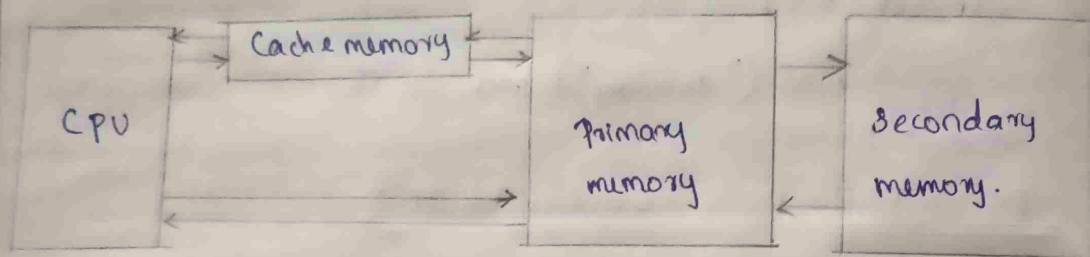 Cache memory
CPU
Primary
memory
Secondary
memory.